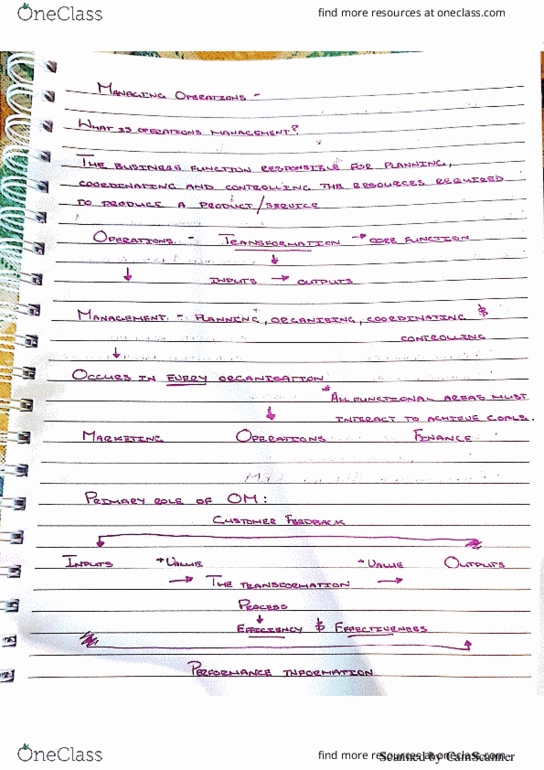 OneClass
find more resources at oneclass.com
MANAGING OPERATIONS -
WHAT IS OPERATIONS MANAGEMENT?
THE BUSINESS FUNCTION RESPONSIBLE FOR PLANNING,
COORDINATING AND CONTROLLING THE RESOURCES REQUIRED
TO PRODUCE A PRODUCT/SERVICE
OPERATIONS - TRANSFORMATION → CORE FUNCTION
↓
↓ INPUTS → OUTPUTS
MANAGEMENT - PLANNING, ORGANISING, COORDINATING &
CONTROLLING
↓
OCCURS IN EVERY ORGANISATION
* ALL FUNCTIONAL AREAS MUST
↓ INTERACT TO ACHIEVE GOALS.
MARKETING OPERATIONS FINANCE
PRIMARY ROLE OF OM:
CUSTOMER FEEDBACK
INPUTS +VALUE +VALUE OUTPUTS
→ THE TRANSFORMATION →
PROCESS
↓
EFFICIENCY & EFFECTIVENESS
PERFORMANCE INFORMATION
OneClass
find more resources at oneclass.com
Scanned by CamScanner